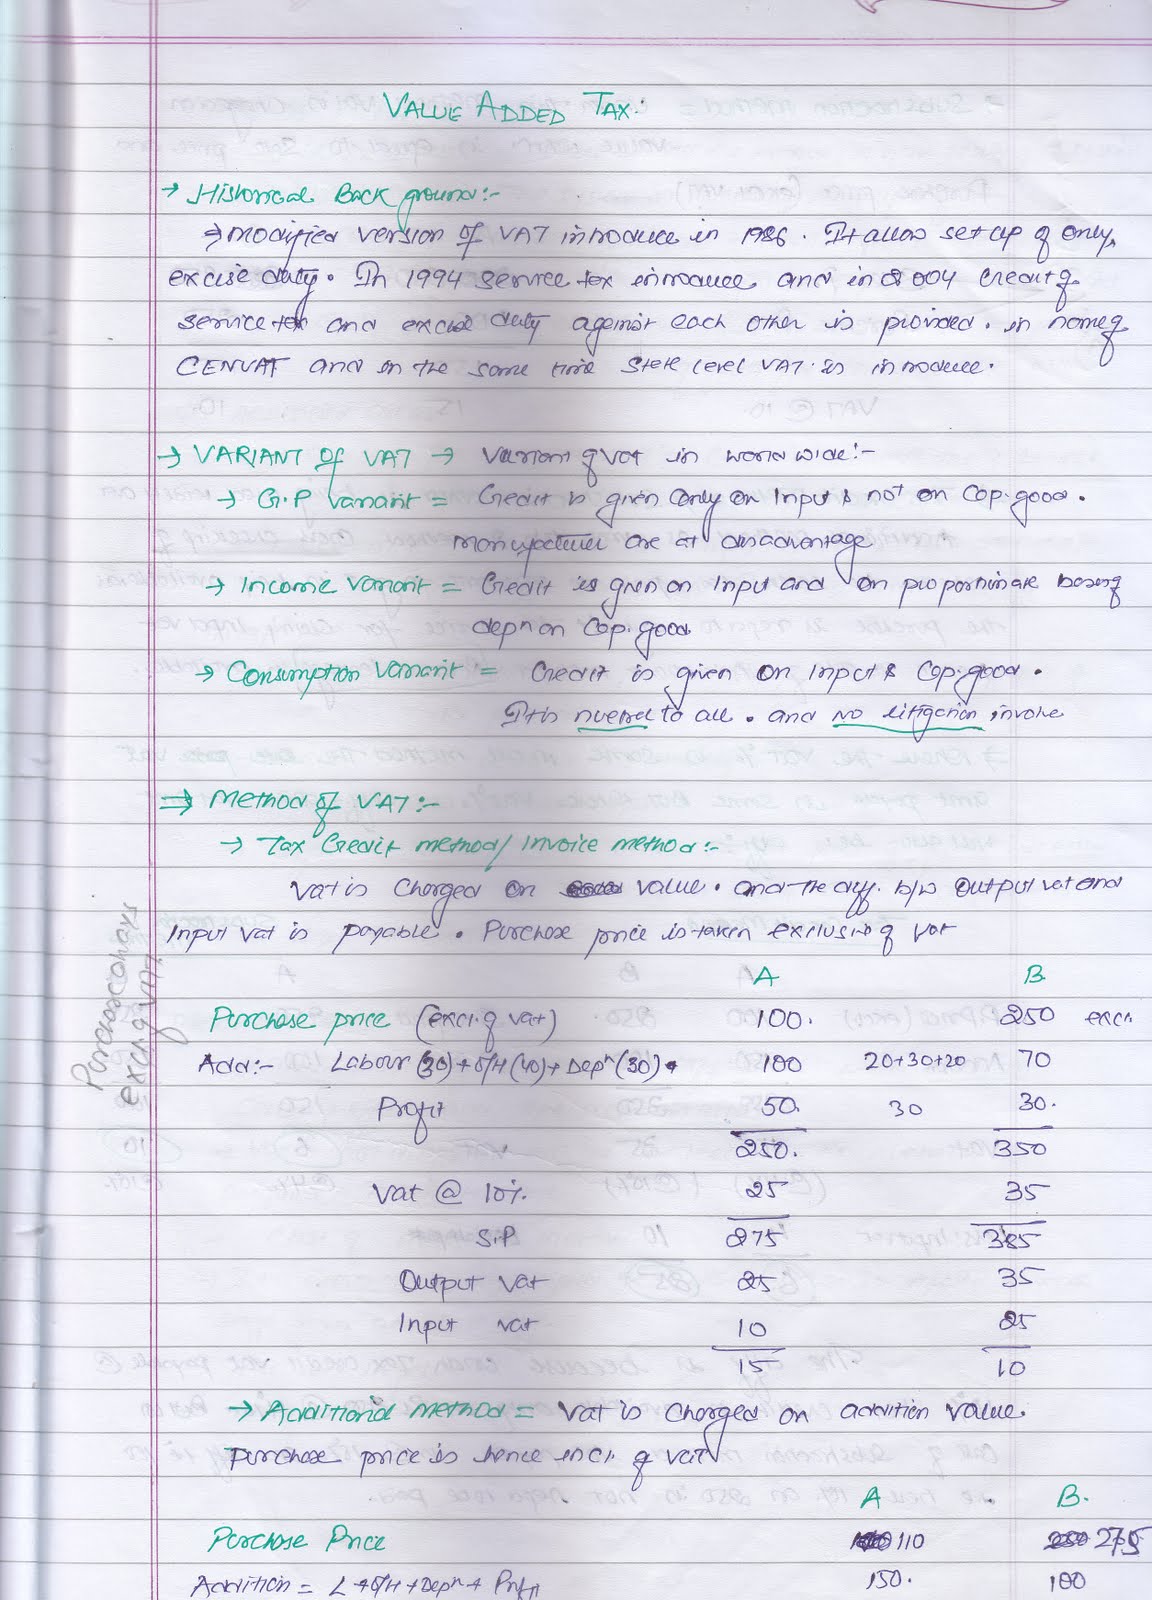 VALUE ADDED TAX:
→ Historical Back ground:-
→ modified version of VAT introduce in 1986. It allow set up of only
excise duty. In 1994 service tax introduce and in 2004 Credit of
service tax and excise duty against each other is provided. in name of
CENVAT and on the same time State level VAT is introduce.
→ VARIANT of VAT → Variant of Vat in world wide:-
→ G.P Variant = Credit is given only on Input & not on Cap. good.
manufacturer are at disadvantage
→ Income Variant = Credit is given on Input and on proportionate basis of
depn on Cap. good
→ Consumption Variant = Credit is given on Input & Cap. good.
It is to all. and no litigation involve
⇒ Method of VAT:-
→ Tax Credit method/ Invoice method:-
Vat is Charged on value. and the diff. b/w Output vat and
Input Vat is payable. Purchase price is taken exclusing of vat
Purchase always
excl. of VAT.
A B
Purchase price (excl. of vat) 100. 250 excl.
Add:- Labour (30) + O/H (40) + Depn (30). 100 20+30+20 70
Profit 50. 30 30.
250. 350
Vat @ 10%. 25 35
S.P 275 385
Output Vat 25 35
Input vat 10 25
15 10
→ Additional method = Vat is Charged on addition value.
Purchase price is hence incl. of VAT
A B.
Purchase Price 110 275
Addition = L+O/H+Depn+ Profit 150. 100